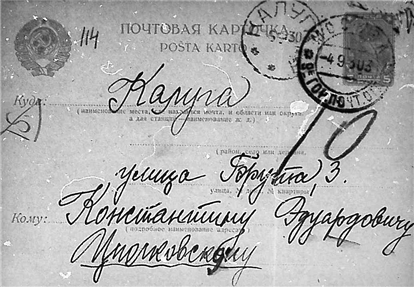 ПОЧТОВАЯ КАРТОЧКА
POSTA KARTO
114
КАЛУГА
5.9.30
МОСКВА
-4.9.30
5
Куда:
Калуга
(наименование места, где находится почта, и области или округа,
а для станции—наименование ж. д.)
10
(район, село или деревня.
улица Брута, 3.
улица, № дома и № квартиры)
Кому:
Константину Эдуардовичу
(подробное наименование адресата)
Циолковскому